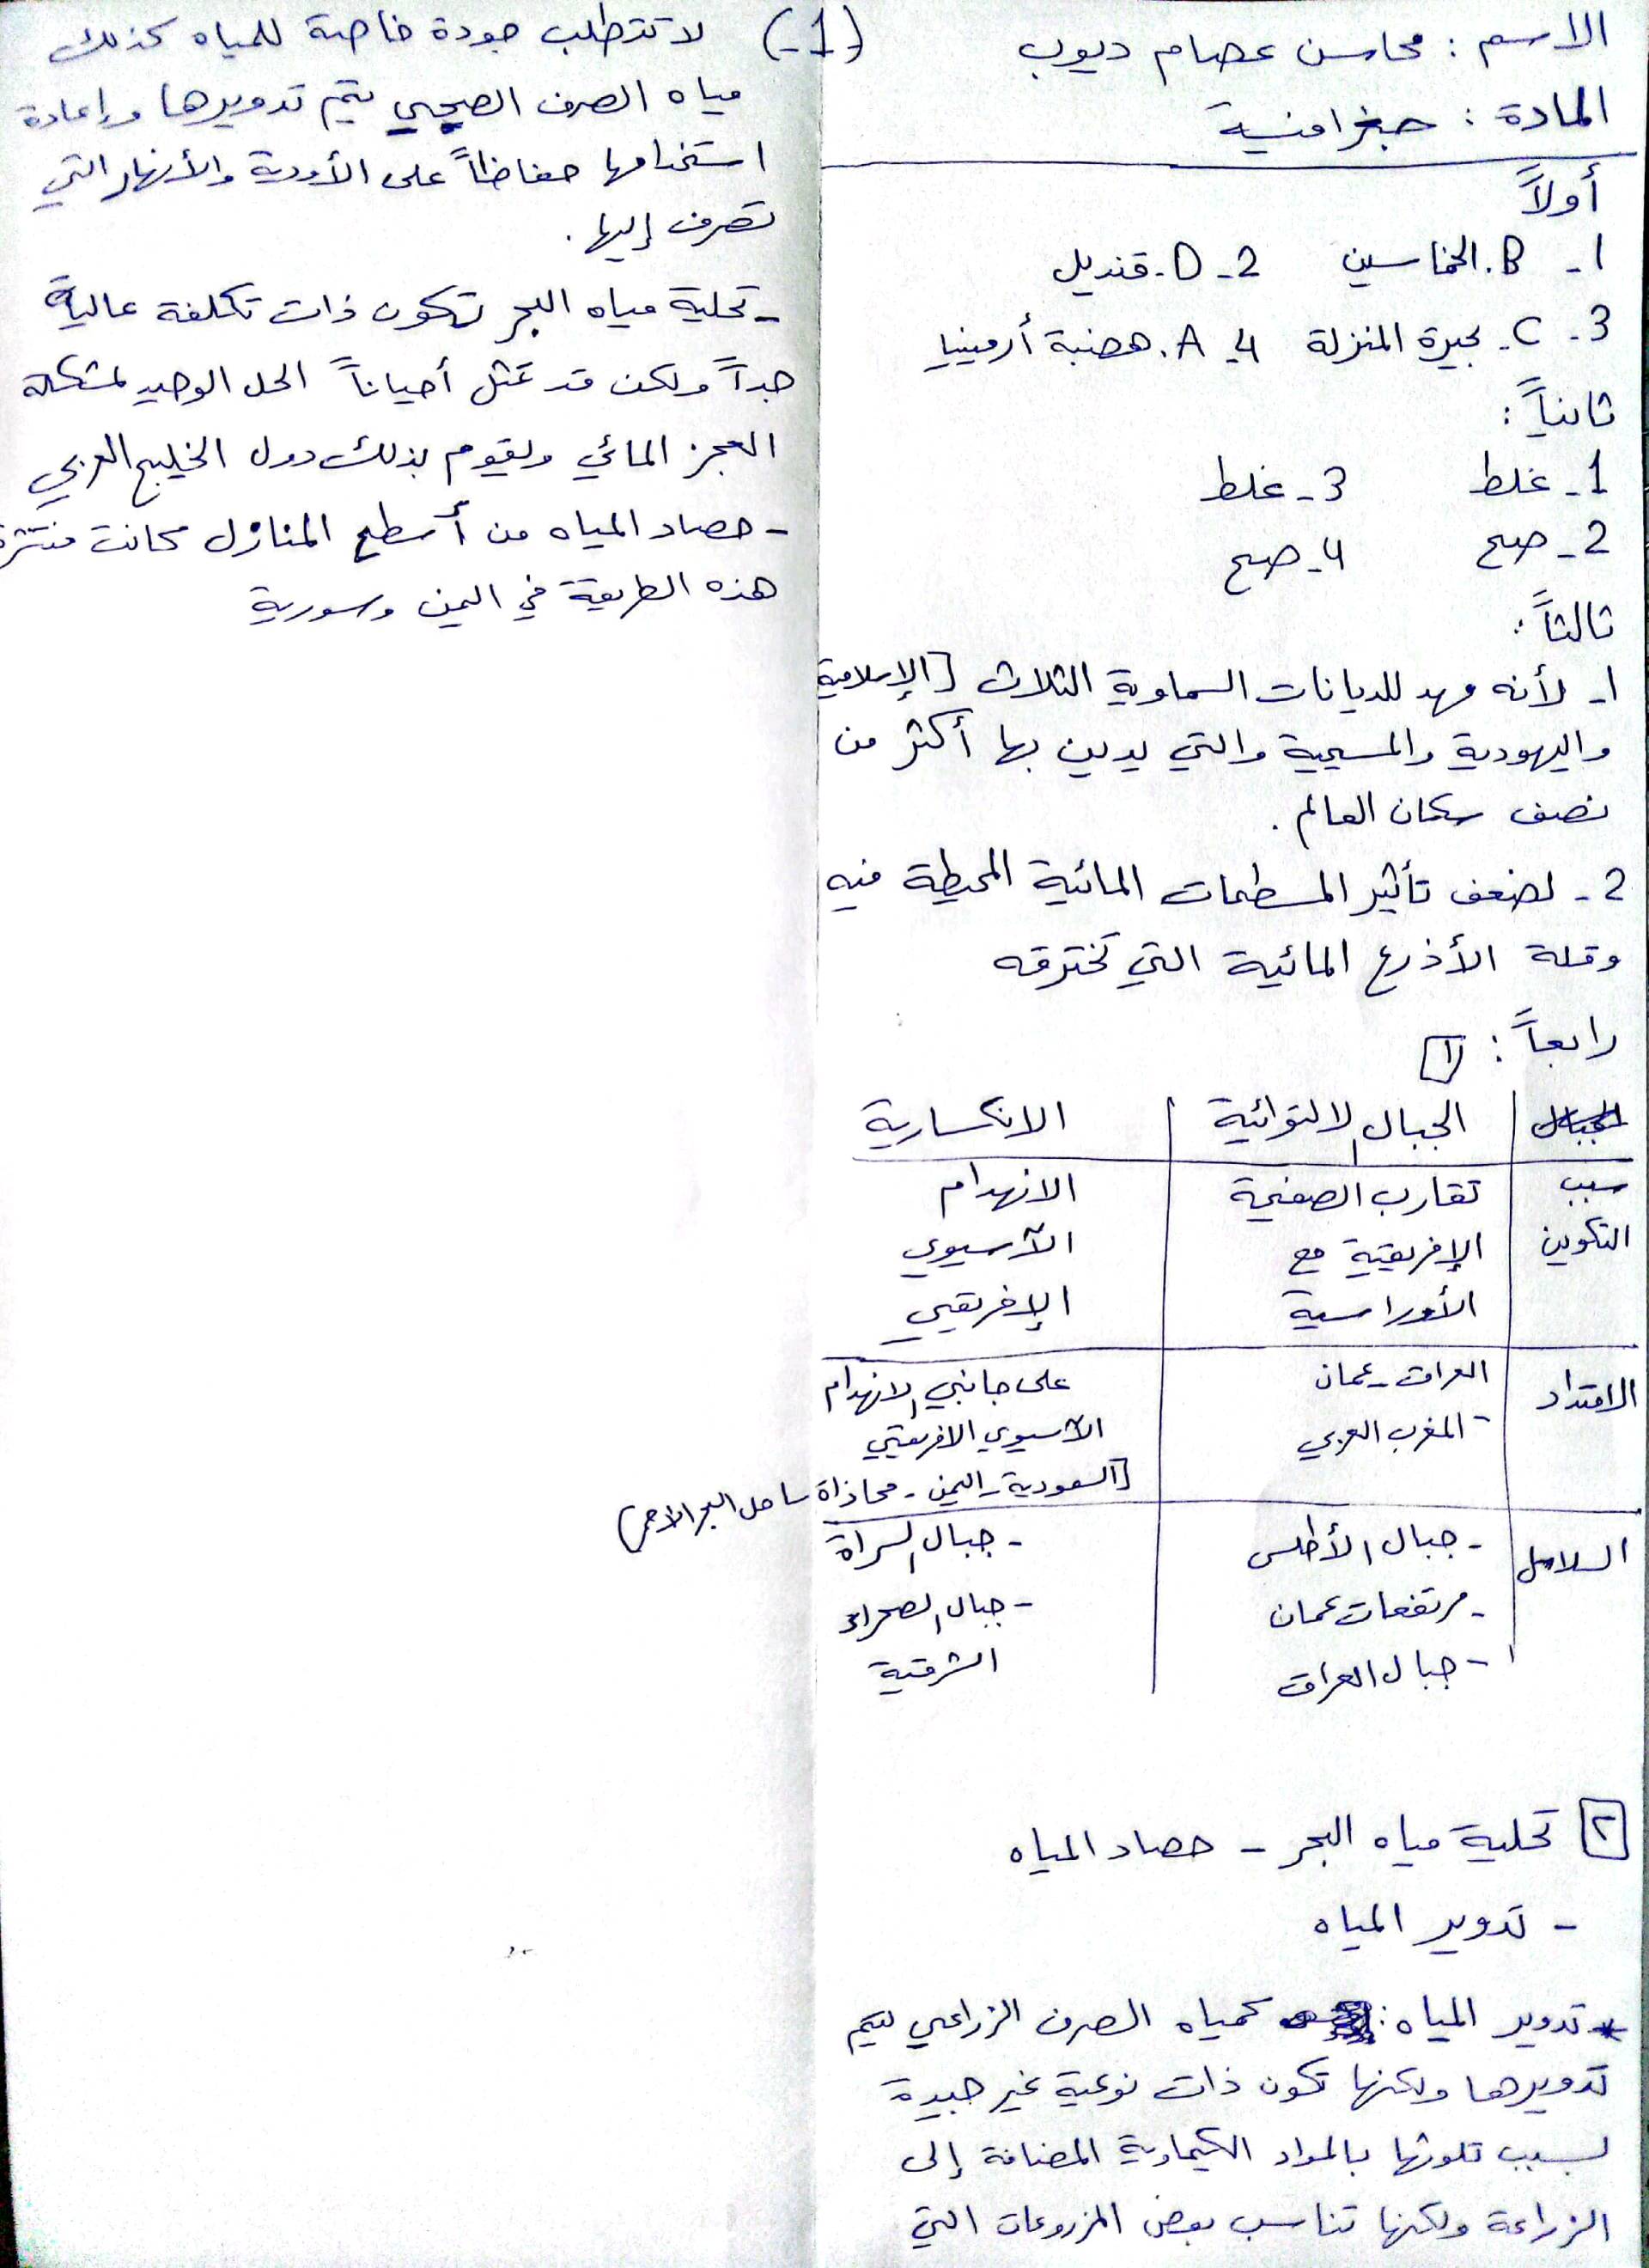 الاسم : محاسن عصام ديوب
المادة : جغرافية
أولاً
1- B. الخماسين 2- D. قنديل
3- C. بحيرة المنزلة 4- A. هضبة أرمينيا
ثانياً :
1- غلط 3- غلط
2- صح 4- صح
ثالثاً :
1- لأنه مهد للديانات السماوية الثلاث [الإسلامية
واليهودية والمسيحية والتي يدين بها أكثر من
نصف سكان العالم .
2- لضعف تأثير المسطحات المائية المحيطة فيه
وقلة الأذرع المائية التي تخترقه
رابعاً : 1
الجبال الالتوائية الانكسارية
سبب تقارب الصفيحة الانهدام
التكوين الإفريقية مع الآسيوي
الأوراسية الإفريقي
الامتداد العراق - عمان على جانبي الانهدام
- المغرب العربي الآسيوي الافريقي
[السعودية - اليمن - محاذاة ساحل البحر الاحمر)
السلاسل - جبال الأطلس - جبال السراة
- مرتفعات عمان - جبال الصحراء
- جبال العراق الشرقية
٢ تحلية مياه البحر - حصاد المياه
- تدوير المياه
* تدوير المياه : كمياه الصرف الزراعي ليتم
تدويرها ولكنها تكون ذات نوعية غير جيدة
بسبب تلوثها بالمواد الكيماوية المضافة إلى
الزراعة ولكنها تناسب بعض المزروعات التي
(-1-) لا تتطلب جودة خاصة للمياه كذلك
مياه الصرف الصحي يتم تدويرها وإعادة
استخدامها حفاظاً على الأودية والأنهار التي
تصرف إليها .
- تحلية مياه البحر تكون ذات تكلفة عالية
جداً ولكن قد تمثل أحياناً الحل الوحيد لمشكلة
العجز المائي ويقوم بذلك دول الخليج العربي
- حصاد المياه من أسطح المنازل كانت منتشرة
هذه الطريقة في اليمن وسورية